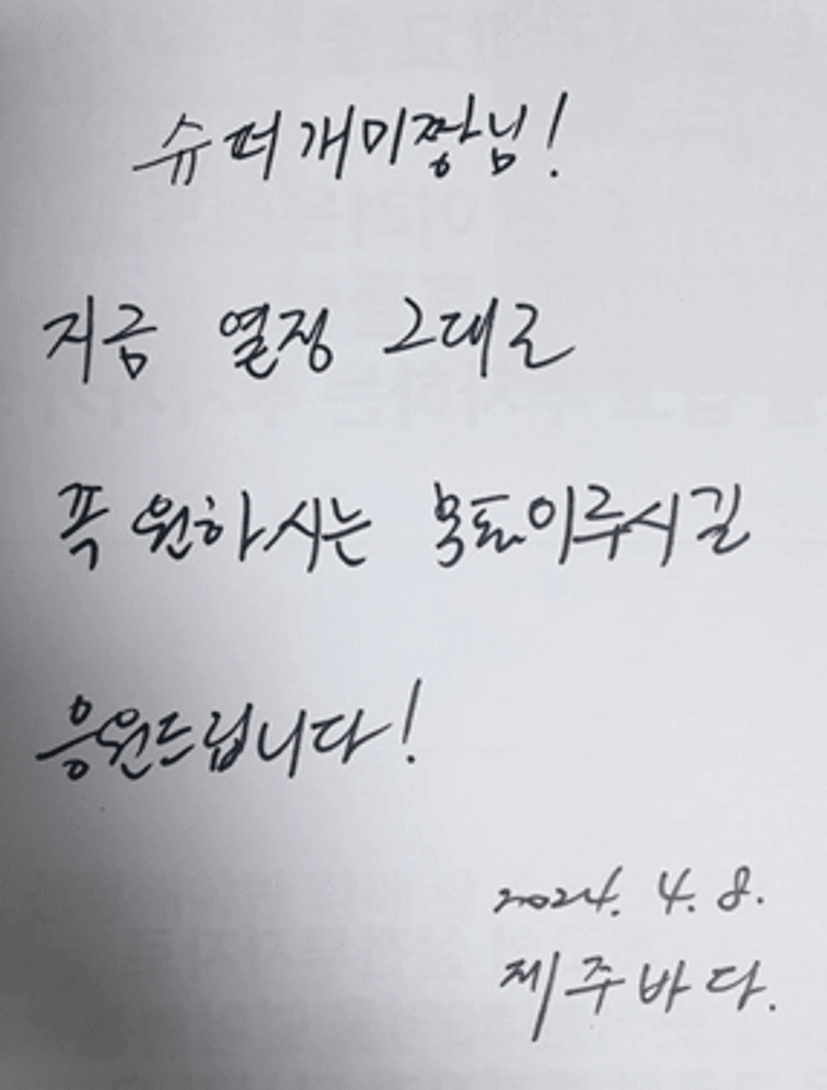 슈퍼개미짱님!
지금 열정 그대로
꼭 원하시는 목표이루시길
응원드립니다!
2024. 4. 8.
제주바다.